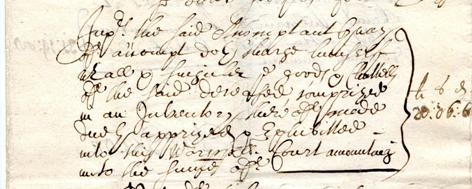 Imprs the said Accomptant
Accompt doth charge himself
all & singuler ye goods & Chattells
of the said deceased comprized
in an Inventory thereof made
duely apprized & Exhibited
into this Court amounting
unto the sume of
li s d
20:06:6